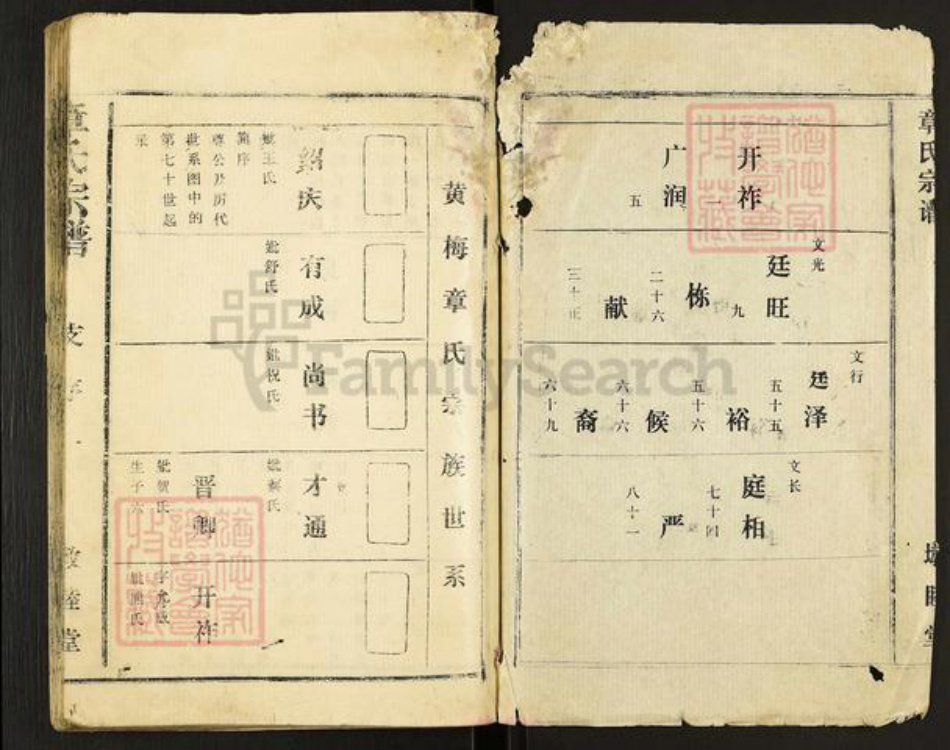 章氏宗谱
开祚
一
广润
五
文光
廷旺
九
栋
二十六
献
文行
廷泽
五十五
裕
五十六
候
六十六
裔
六十九
文长
庭相
七十四
严
八十一
黄梅章氏宗族世系
绍庆
妣王氏
尊公及历代
世系图中的
第七十世起
有成
妣舒氏
尚书
妣祝氏
才通
晋卿
妣贺氏
生子六
开祚
章氏宗谱
敦睦堂
FamilySearch